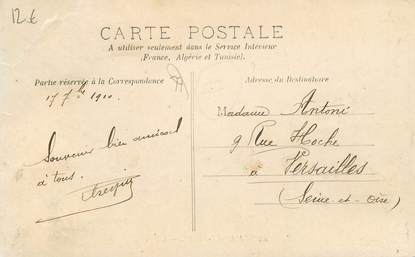 12 €
CARTE POSTALE
A utiliser seulement dans le Service Intérieur
(France, Algérie et Tunisie).
Partie réservée à la Correspondance
Adresse du Destinataire
17 7bre 1910
Madame Antoni
9 Rue Hoche
à Versailles
(Seine-et-Oise)
Souvenir bien amical
à tous.